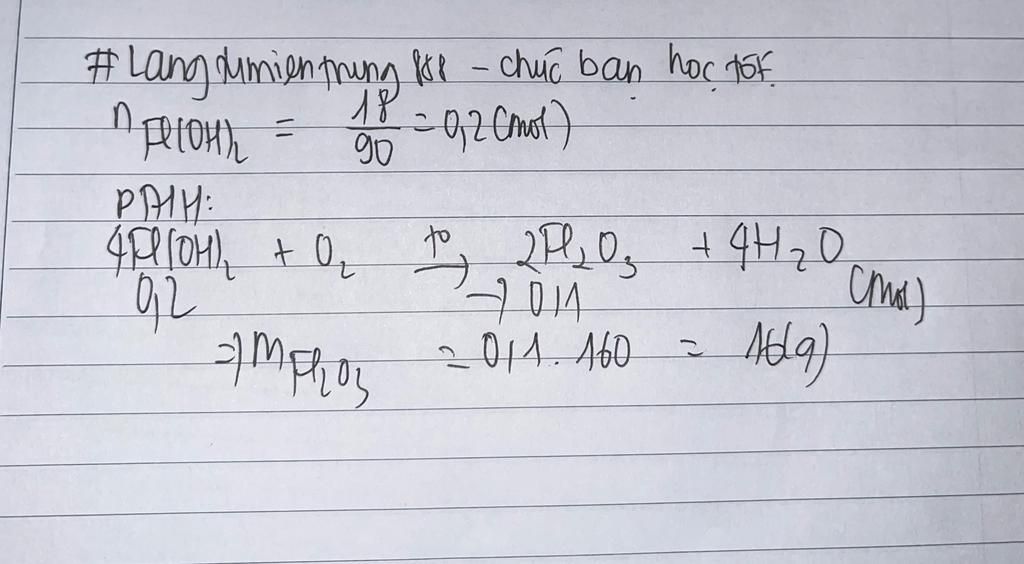 #Langdumientrung - chúc bạn học tốt.
n Fe(OH)₂ = 18/90 = 0,2 (mol)
PTHH:
4Fe(OH)₂ + O₂ t⁰→ 2Fe₂O₃ + 4H₂O
0,2 → 0,1 (mol)
⇒ m Fe₂O₃ = 0,1 . 160 = 16(g)